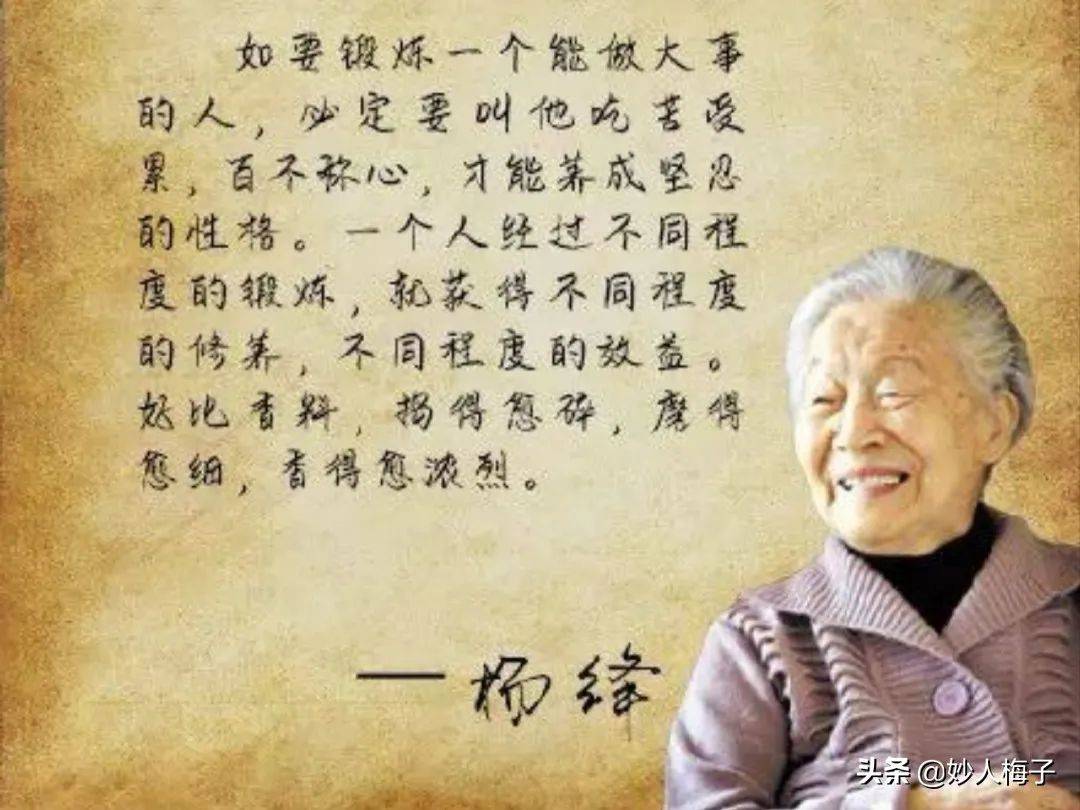 如要锻炼一个能做大事
的人，必定要叫他吃苦受
累，百不称心，才能养成坚忍
的性格。一个人经过不同程
度的锻炼，就获得不同程度
的修养，不同程度的效益。
好比香料，捣得愈碎，磨得
愈细，香得愈浓烈。
——杨绛
头条 @妙人梅子